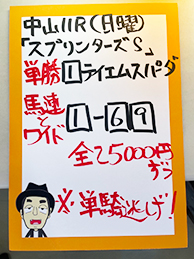 中山11R(日曜)
「スプリンターズS」
単勝1テイエムスパーダ
馬連とワイド 1-69
全25000円ずつ
※単騎逃げ!